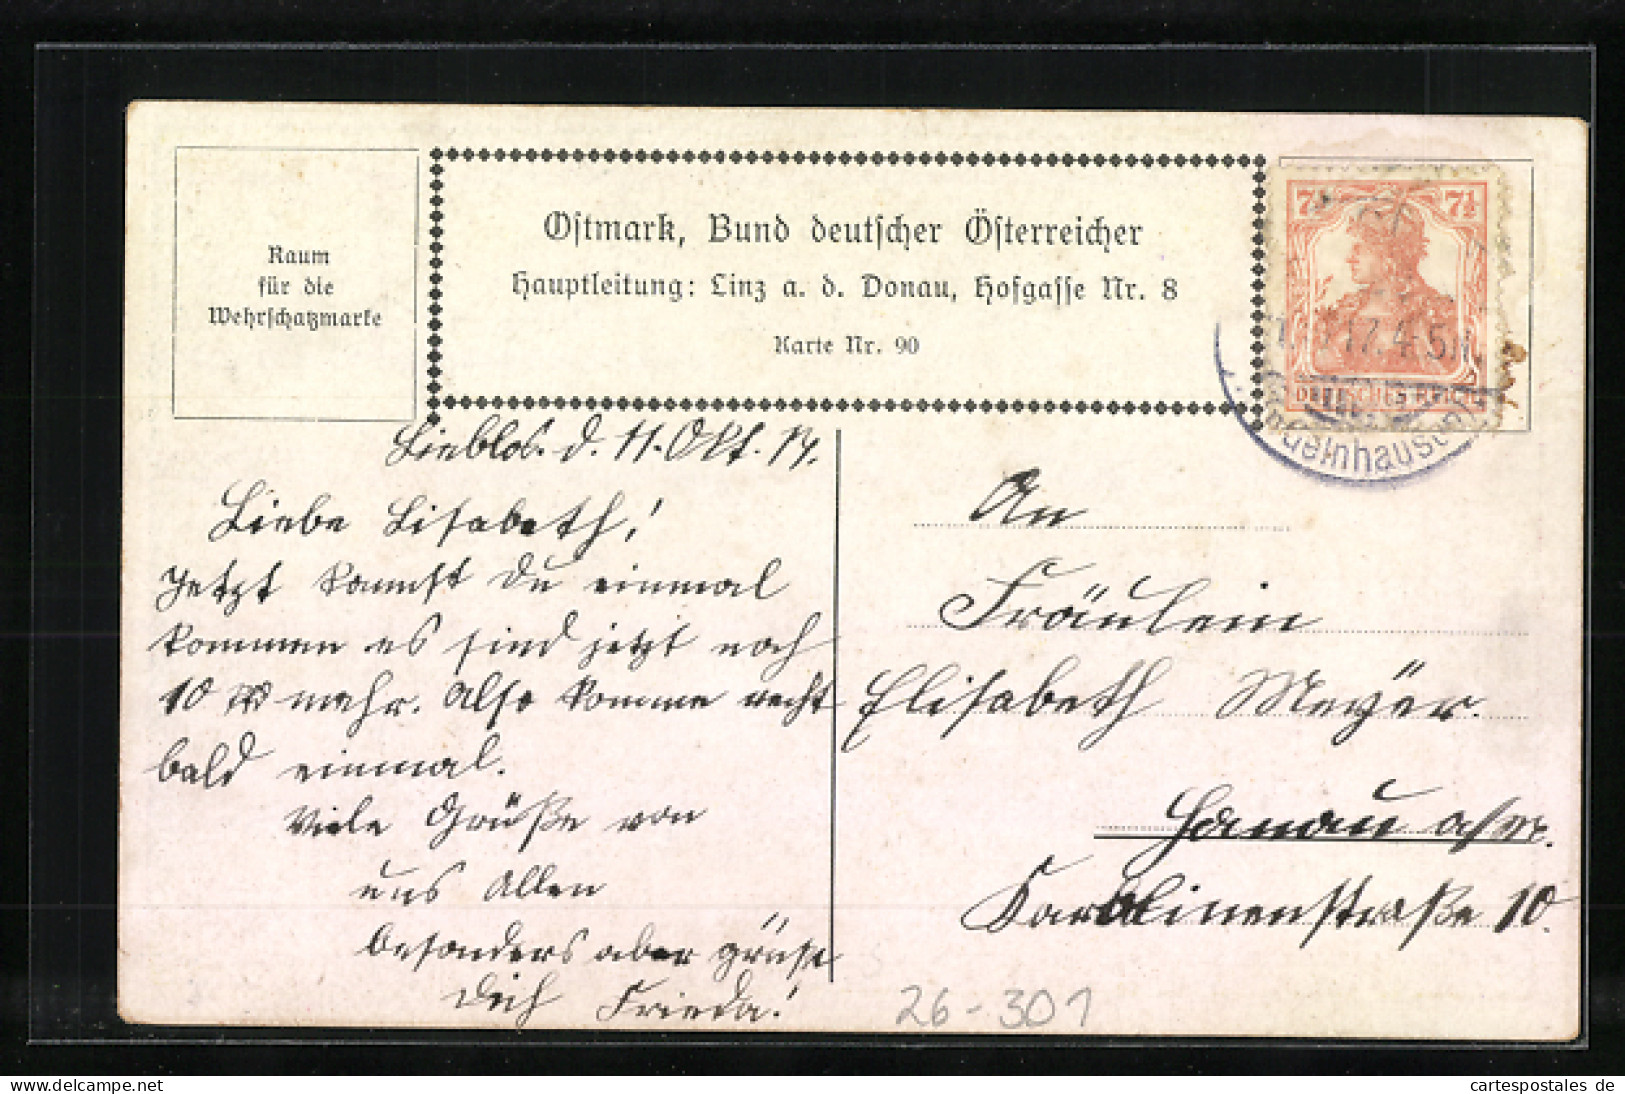 Raum
für die
Wehrschatzmarke
Ostmark, Bund deutscher Österreicher
Hauptleitung: Linz a. d. Donau, Hofgasse Nr. 8
Karte Nr. 90
7½ 7½
DEUTSCHES REICH
17.4-5N
Gelnhausen
Lieblos. d. 11. Okt. 17.
Liebe Lisabeth!
Jetzt kannst Du einmal
kommen es sind jetzt noch
10 mehr. Also komme recht
bald einmal.
Viele Grüße von
uns Allen
besonders aber grüßt
Dich Frieda!
An
Fräulein
Elisabeth Meyer.
Hanau a/M.
Karolinenstraße 10.
26-301
cartespostales de